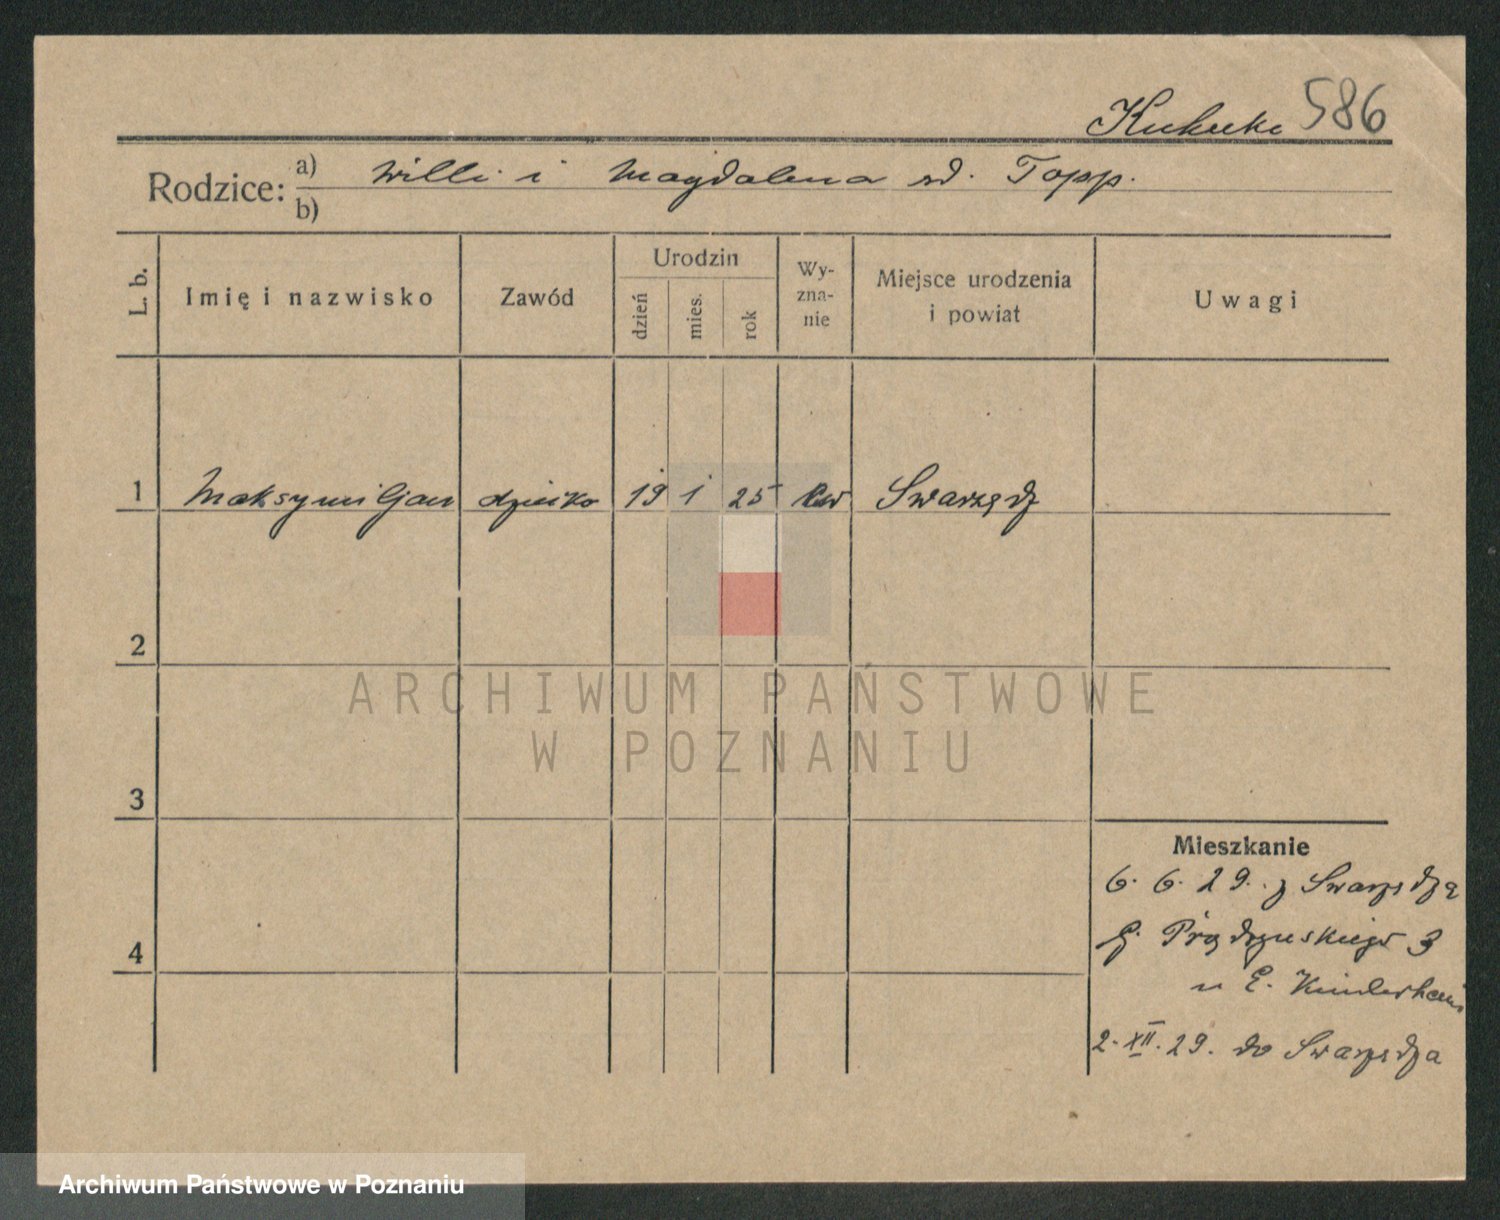 586
Rodzice: a) Willi i Magdalena sd. Topp.
b)
L. b.
Imię i nazwisko
Zawód
Urodzin
dzień
mies.
rok
Wy-
zna-
nie
Miejsce urodzenia
i powiat
Uwagi
1 Maksymiljan dziecko 19 1 25 Ew Swarzędz
2
ARCHIWUM PAŃSTWOWE
W POZNANIU
3
Mieszkanie
6. 6. 29. z Swarzędza
G. Prądzyńskiego 3
u E.
4
2. XII. 29. do Swarzędza
Archiwum Państwowe w Poznaniu